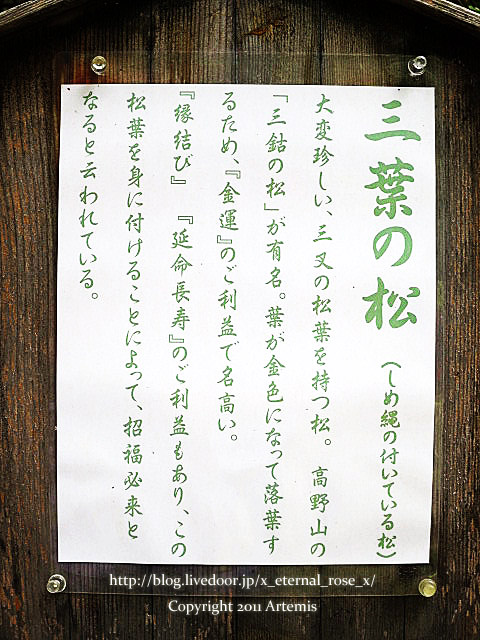 三葉の松（しめ縄の付いている松）
大変珍しい、三叉の松葉を持つ松。　高野山の
「三鈷の松」が有名。葉が金色になって落葉す
るため、『金運』のご利益で名高い。
『縁結び』　『延命長寿』のご利益もあり、この
松葉を身に付けることによって、招福必来と
なると云われている。
http://blog.livedoor.jp/x_eternal_rose_x/
Copyright 2011 Artemis